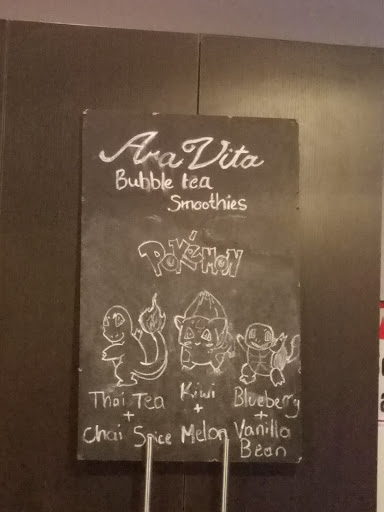 Ara Vita
Bubble tea
Smoothies
POKéMON
Thai Tea
+
Chai Spice
Kiwi
+
Melon
Blueberry
+
Vanilla
Bean